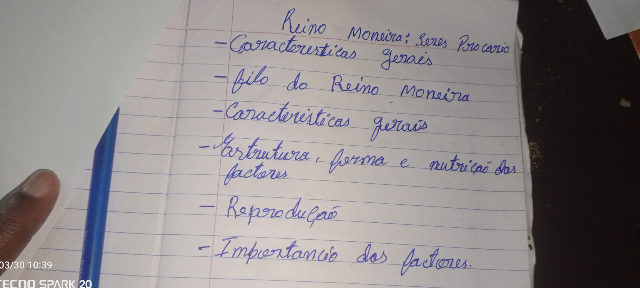 Reino Moneira: Seres Procario
- Caracteristicas gerais
- filo do Reino Moneira
- Caracteristicas gerais
- Estrutura, forma e nutrição das
factores
- Reprodução
- Importancio dos factores.
03/30 10:39
TECNO SPARK 20